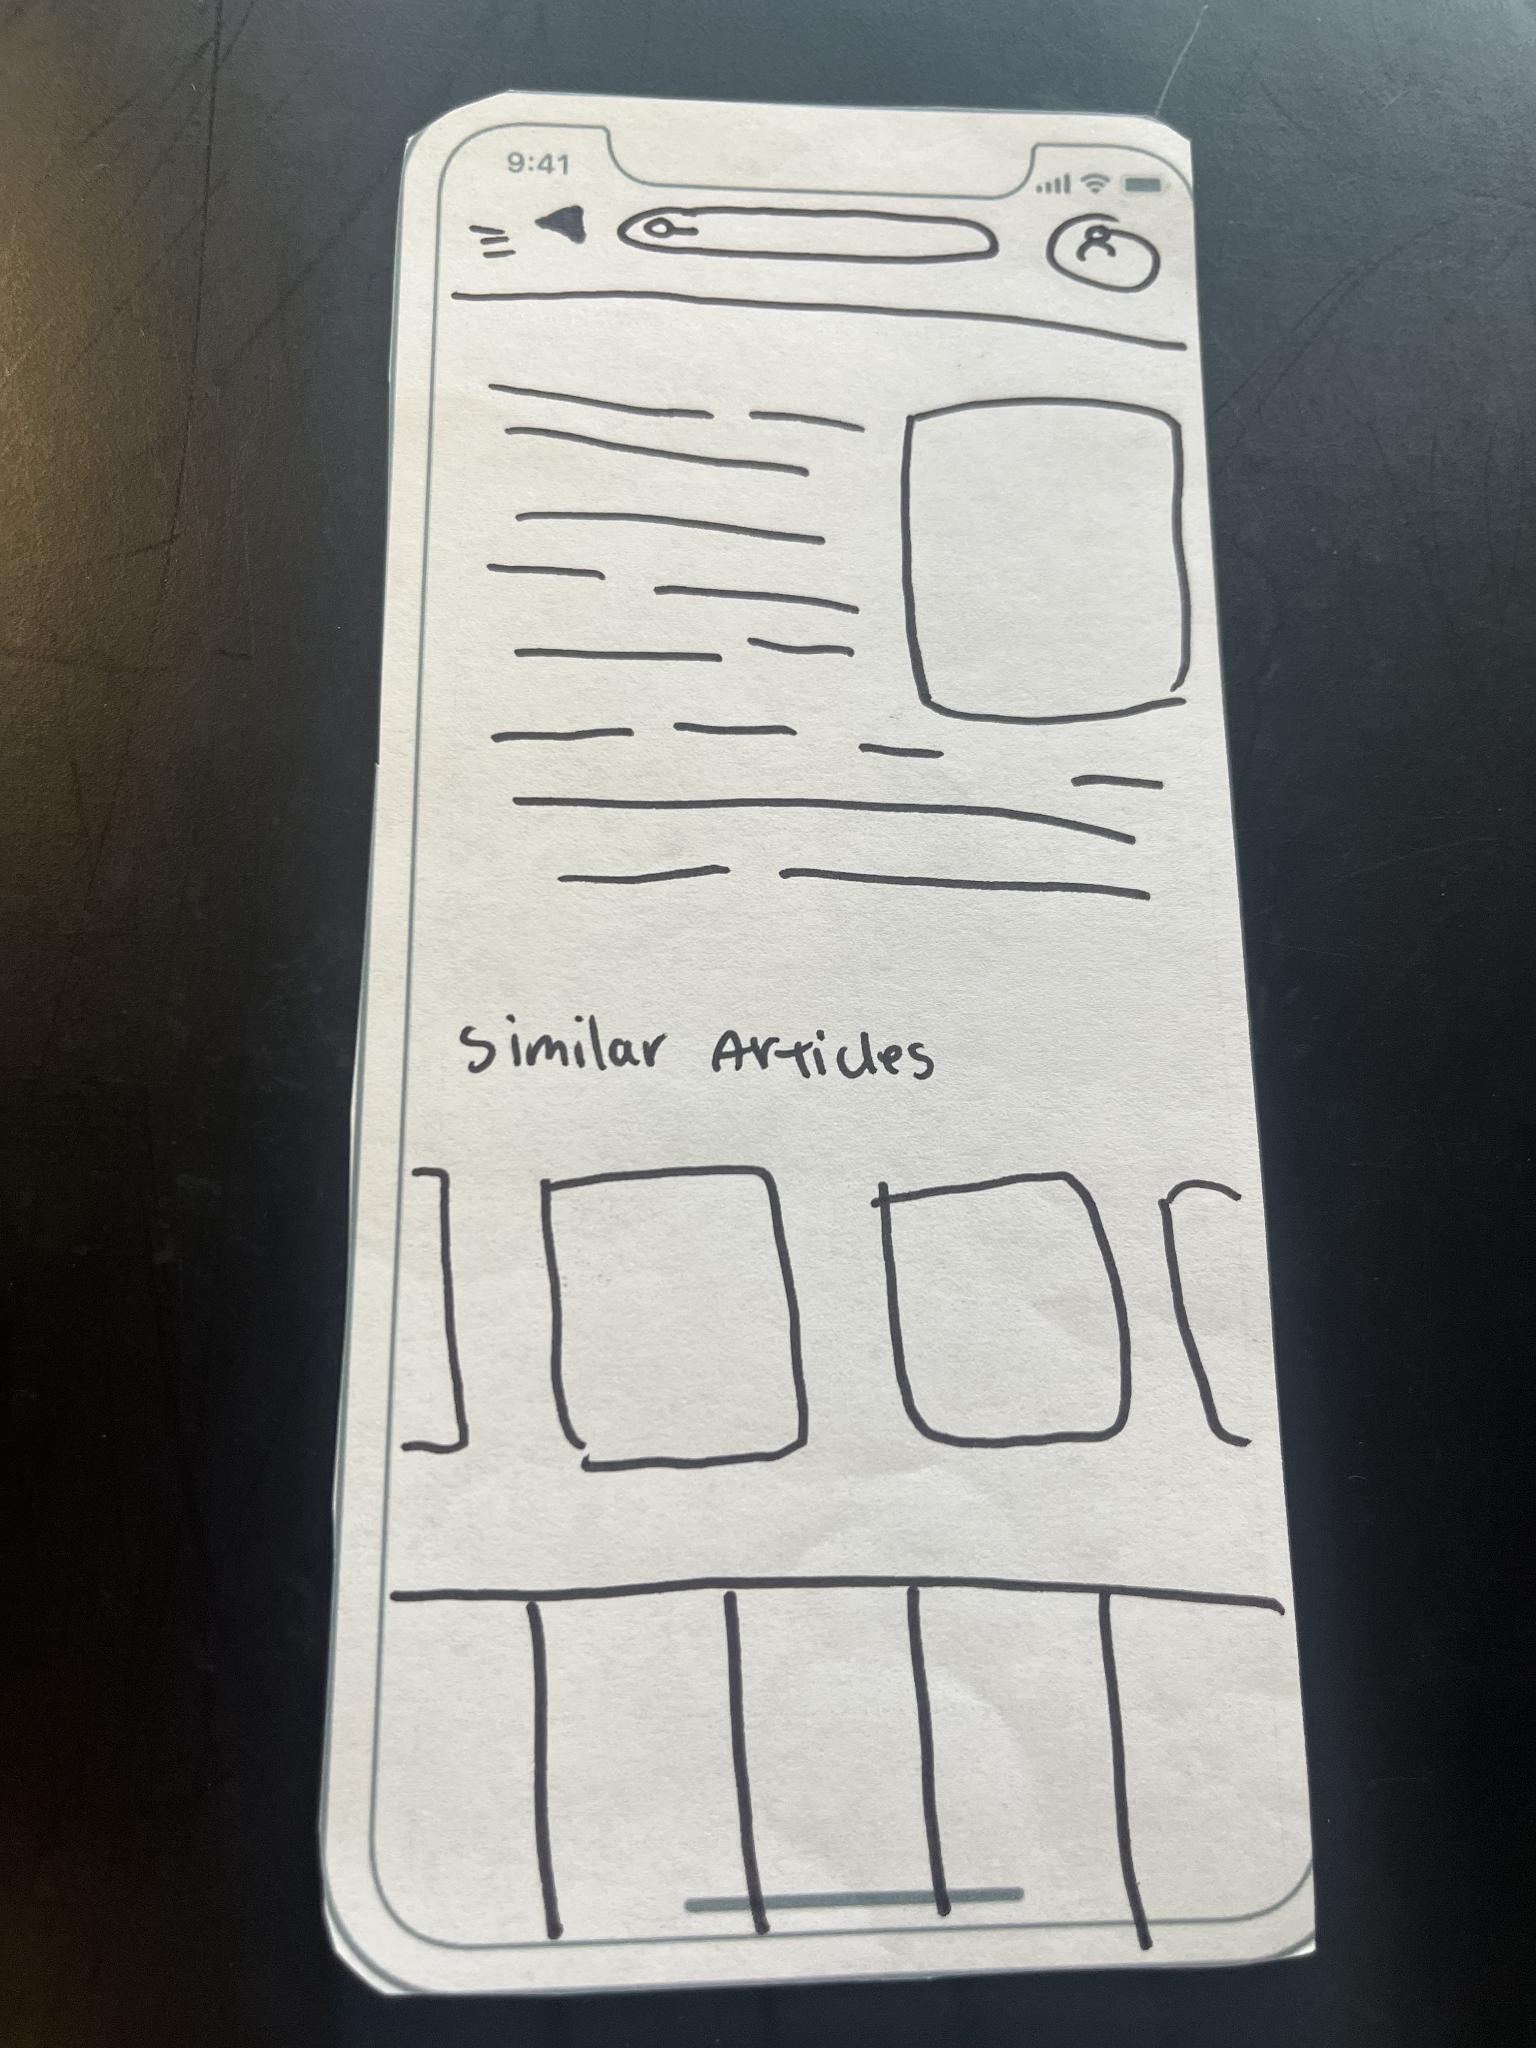 9:41
Similar Articles